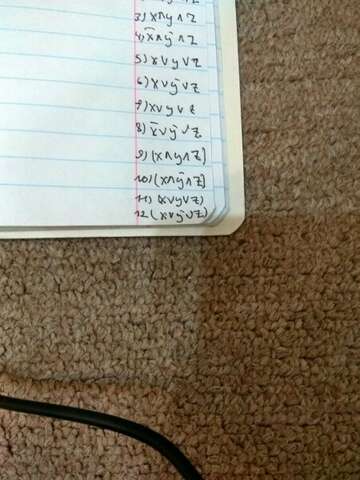 3) x∧y∧z
4) x̄∧ȳ∧z
5) x∨y∨z
6) x∨ȳ∨z
7) x∨y∨z
8) x̄∨ȳ∨z
9) (x∧y∧z)
10) (x∧ȳ∧z)
11) (x∨y∨z)
12 (x∨ȳ∨z)